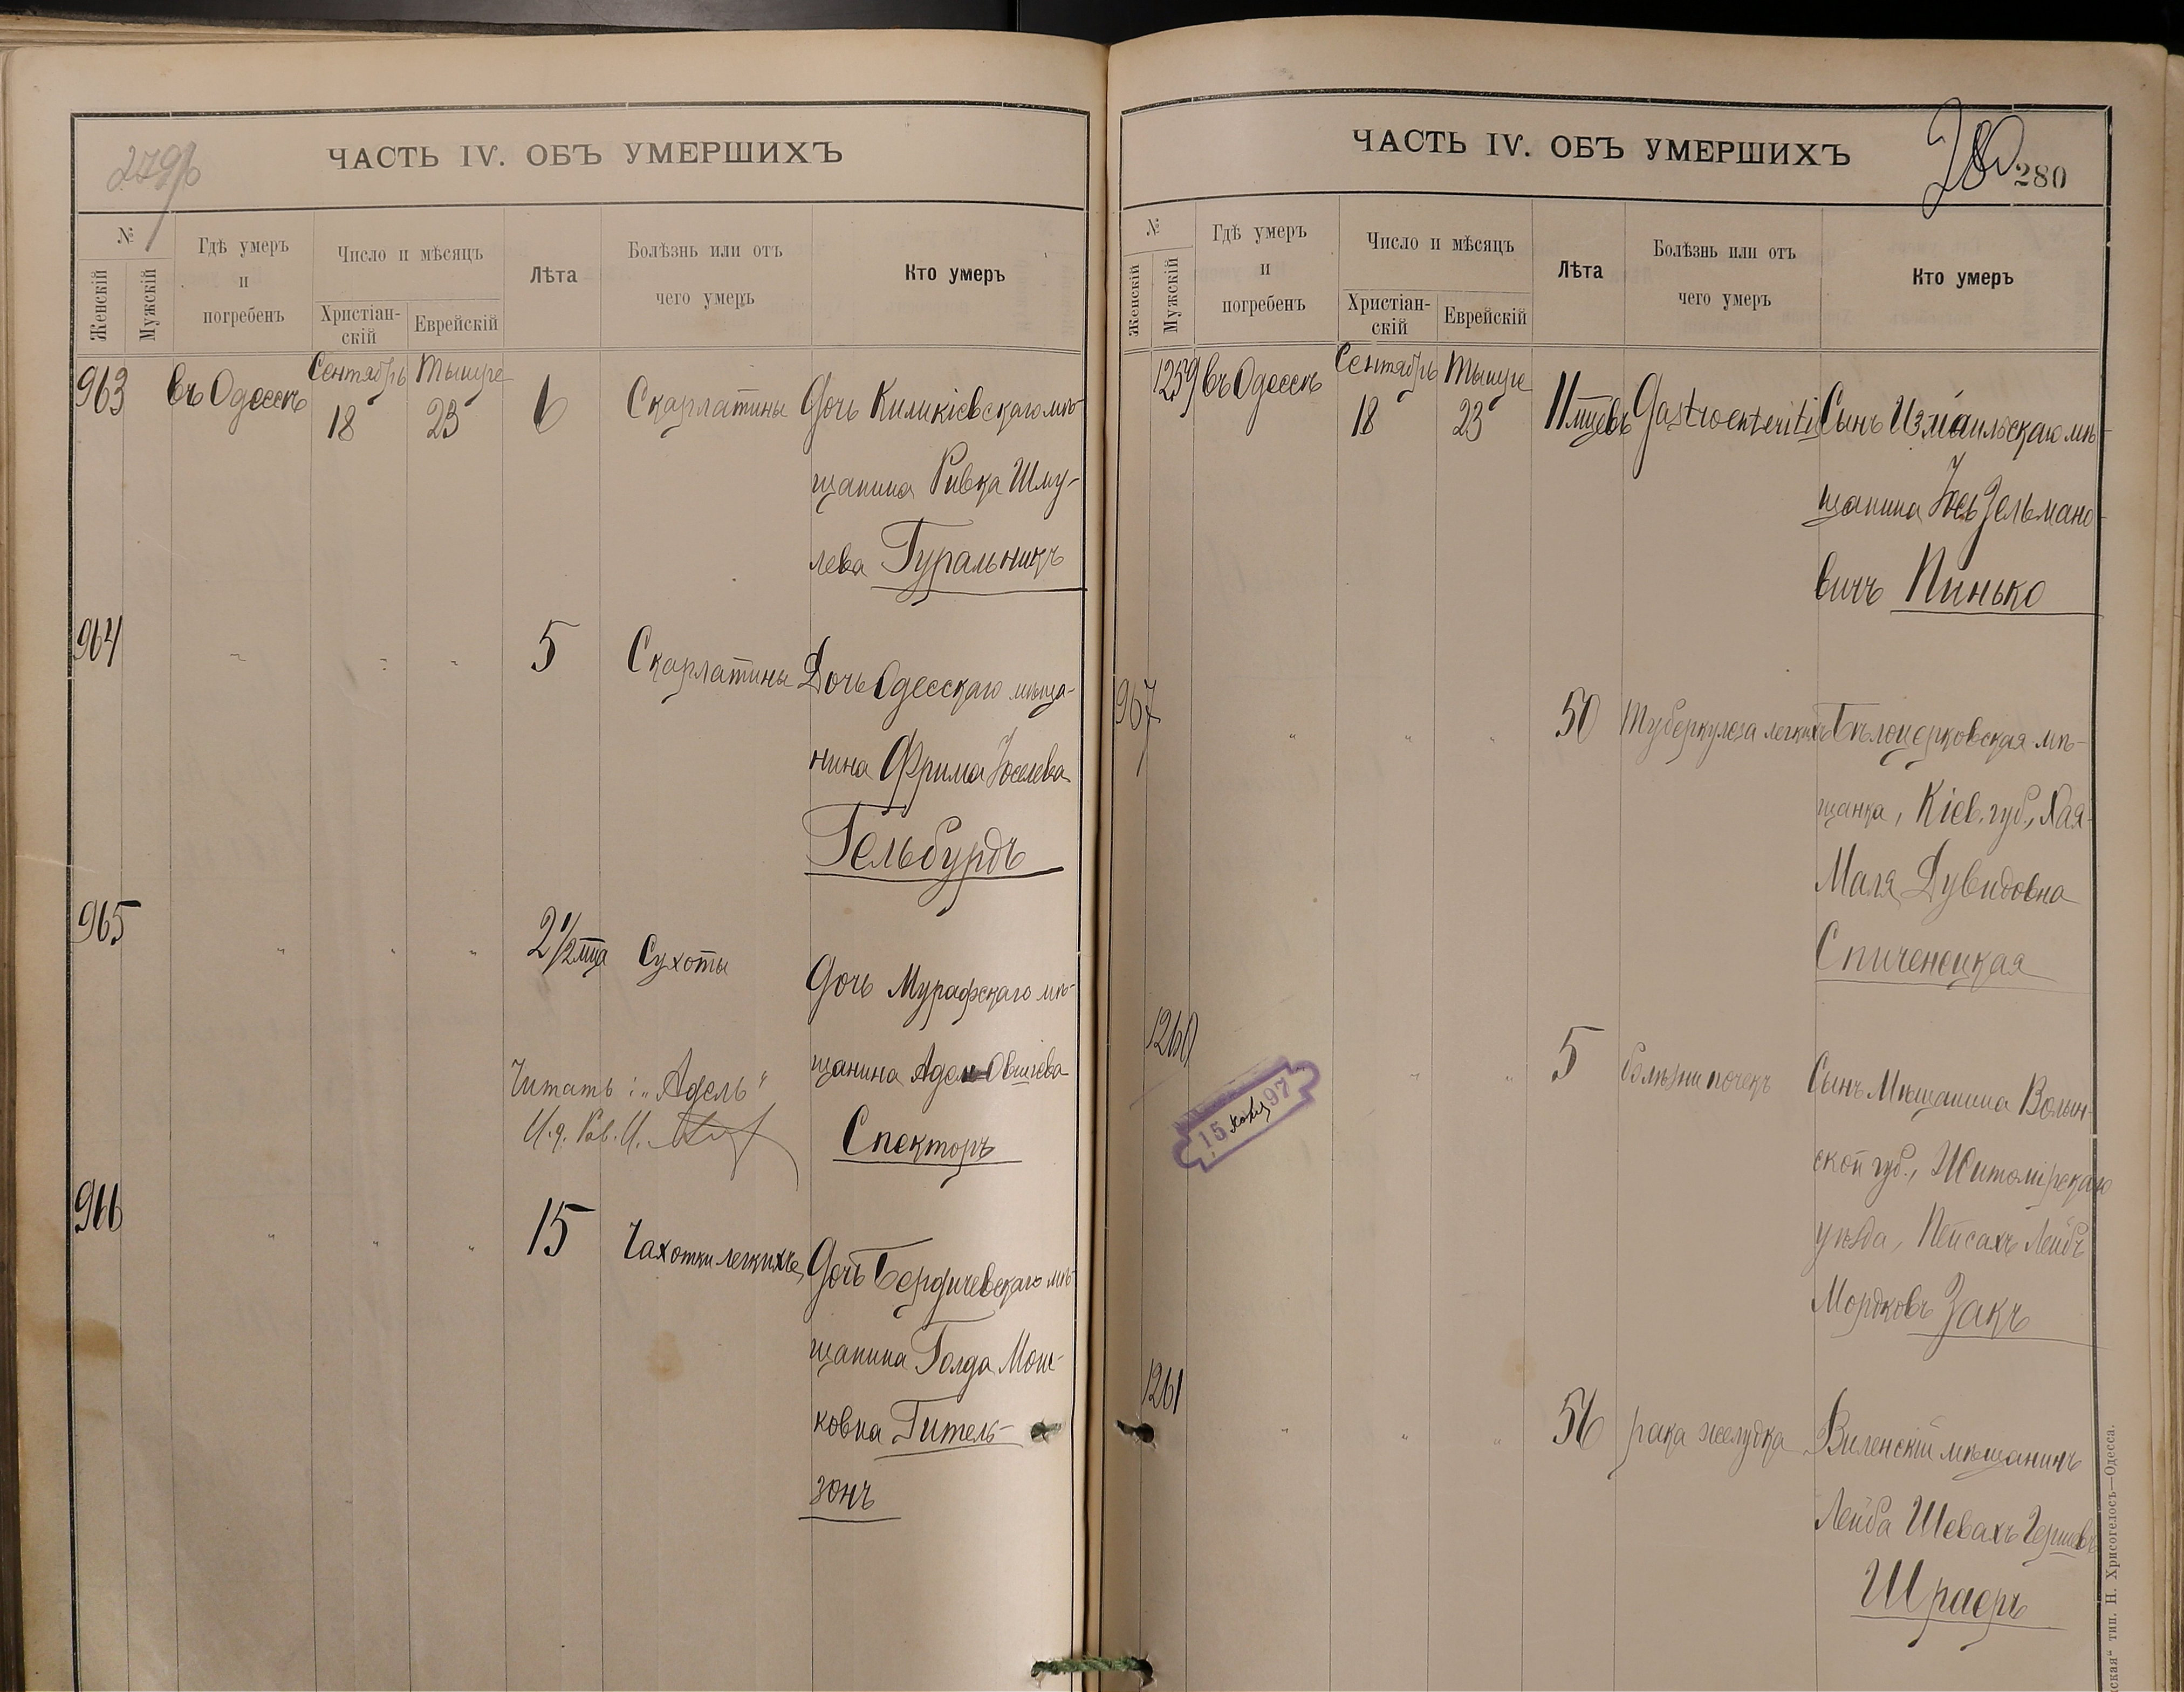 279/об
ЧАСТЬ IV. ОБЪ УМЕРШИХЪ
№
Женскій
Мужскій
Гдѣ умеръ
и
погребенъ
Число и мѣсяцъ
Христіан-
скій
Еврейскій
Лѣта
Болѣзнь или отъ
чего умеръ
Кто умеръ
963 въ Одессѣ Сентябрь 18 Тышре 23 6 Скарлатины Дочь Киликіевскаго мѣ-
щанина Ривка Шму-
лева Гуральникъ
964 " " " 5 Скарлатины Дочь Одесскаго мѣща-
нина Фрима Іоселева
Гельбурдъ
965 " " " 2 1/2 мца Сухоты Дочь Мурафскаго мѣ-
щанина Адел Овшіева
Спекторъ
Читать: „Адель"
И. д. Рав. И.
966 " " " 15 Чахотки легкихъ Дочь Бердичевскаго мѣ-
щанина Голда Мош-
ковна Гитель-
зонъ
ЧАСТЬ IV. ОБЪ УМЕРШИХЪ
280
280
№
Женскій
Мужскій
Гдѣ умеръ
и
погребенъ
Число и мѣсяцъ
Христіан-
скій
Еврейскій
Лѣта
Болѣзнь или отъ
чего умеръ
Кто умеръ
1259 въ Одессѣ Сентябрь 18 Тышре 23 11 мцевъ Gastroenteritis Сынъ Измаильскаго мѣ-
щанина Іось Зельмано-
вичъ Пинько
967 " " " 50 Туберкулеза легкихъ Бѣлоцерковская мѣ-
щанка, Кіев. губ., Хая-
Маля Дувидовна
Спиченецкая
1260 " " 5 болѣзни почекъ Сынъ Мѣщанина Волын-
ской губ., Житомірскаго
уѣзда, Пейсахъ Лейбъ
Мордковъ Закъ
15 97
1261 " " " 56 рака желудка Виленскій мѣщанинъ
Лейба Шевахъ Гершевъ
Шраеръ
ская" тип. Н. Хрисогелосъ—Одесса.